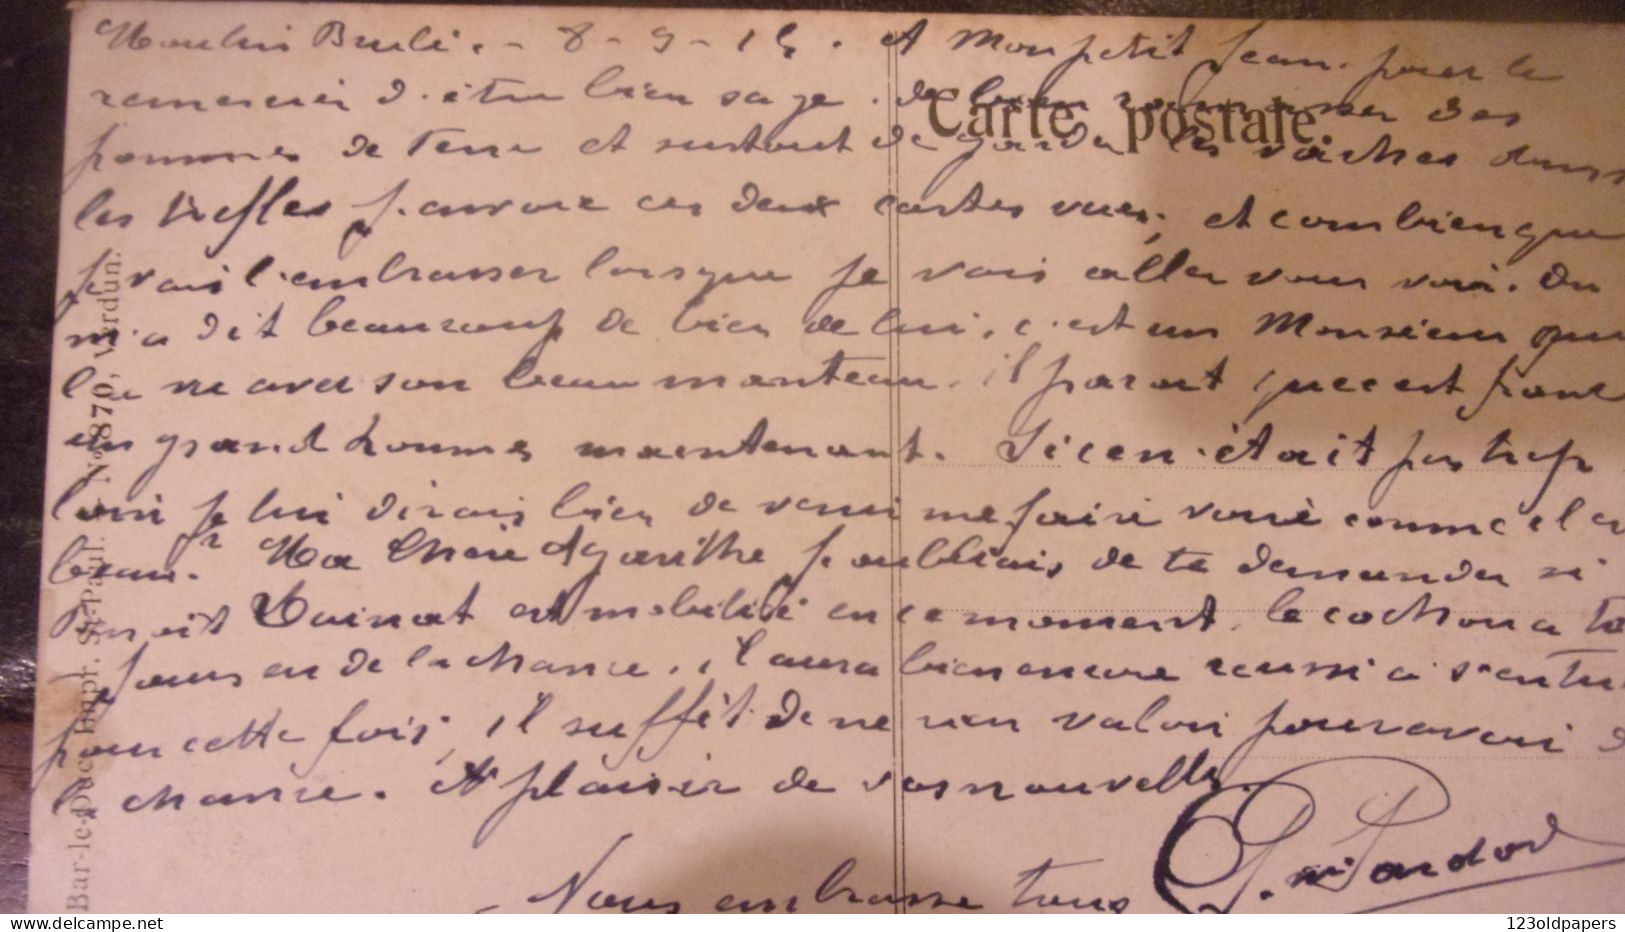 Moulin Brulé. - 8 - 9 - 15. A Mon petit Jean. pour le
remercier d'être bien sage. de bien ramasser des
Carte postale.
pommes de Terre et surtout de garder les vaches dans
les trefles j'envoie ces deux cartes vues, et combien que
je vais l'embrasser lorsque je vais aller vous voir. On
m'a dit beaucoup de bien de lui, c'est un Monsieur
avec son beau manteau. il parait que c'est
un grand homme maintenant. Si cen était pas trop
loin je lui dirais bien de venir me faire voir comme il e
beau. Ma Chère Agarithe j'oubliais de te demander si
Benoit est mobilisé en ce moment. le cochon a to
jours eu de la chance. il aura bien encore reussi a s'en
pour cette fois, il suffit de ne rien valoir pour avoir d
la chance. Au plaisir de vos nouvelles.
Nous embrasse tous
Bar-le-Duc, Impr. St-Paul. - No 870, Verdun.
123oldpapers